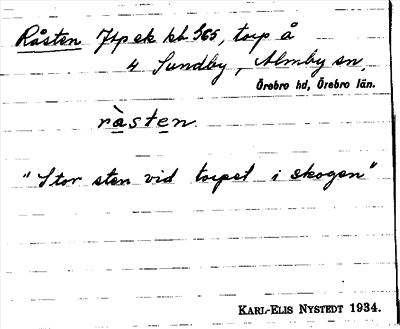 Råsten Jtp ek kb 365, torp å
4 Sundby, Almby sn,
Örebro hd, Örebro län.
ràsten.
"Stor sten vid torpet i skogen"
KARL-ELIS NYSTEDT 1934.